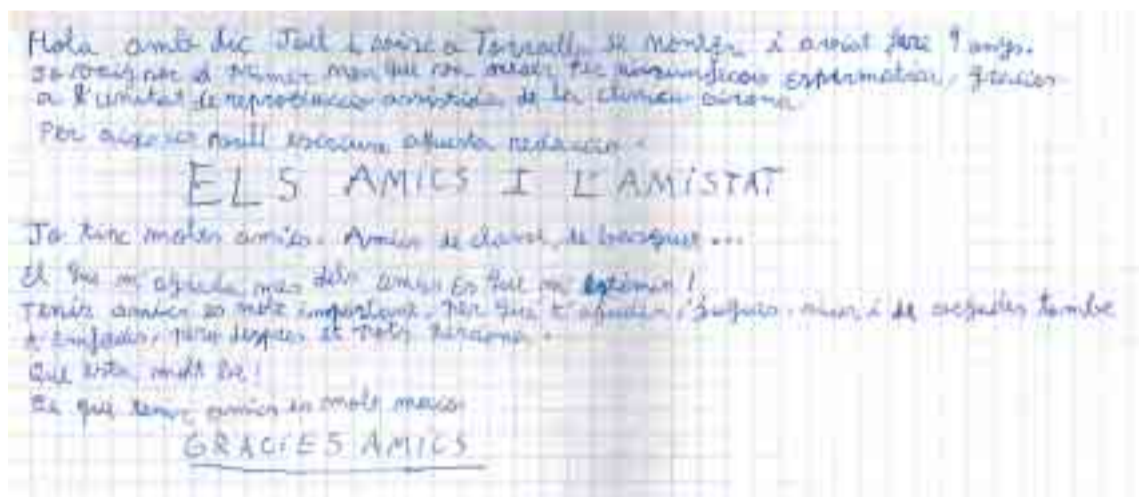 Hola amb dic Jail i visc a Torroella de Montgrí i aviat faré 9 anys.
Jo vaig ser el primer nen que van néixer per microinjecció espermàtica, gracies
a l'unitat de reproduccio assistida de la clinica Girona.
Per aixo us vull escriure aquesta redaccio.
ELS AMICS I L'AMISTAT
Jo tinc molts amics. Amics de classe, de basquet...
El que m'agrada mes dels amics es que m'estimin!
Tenir amics es molt important, per que t'ajuden, jugues, rius i de vegades tambe
t'enfades, pero despres et perdones.
Que esta molt be!
Es que tenir amics es molt maco.
GRACIES AMICS